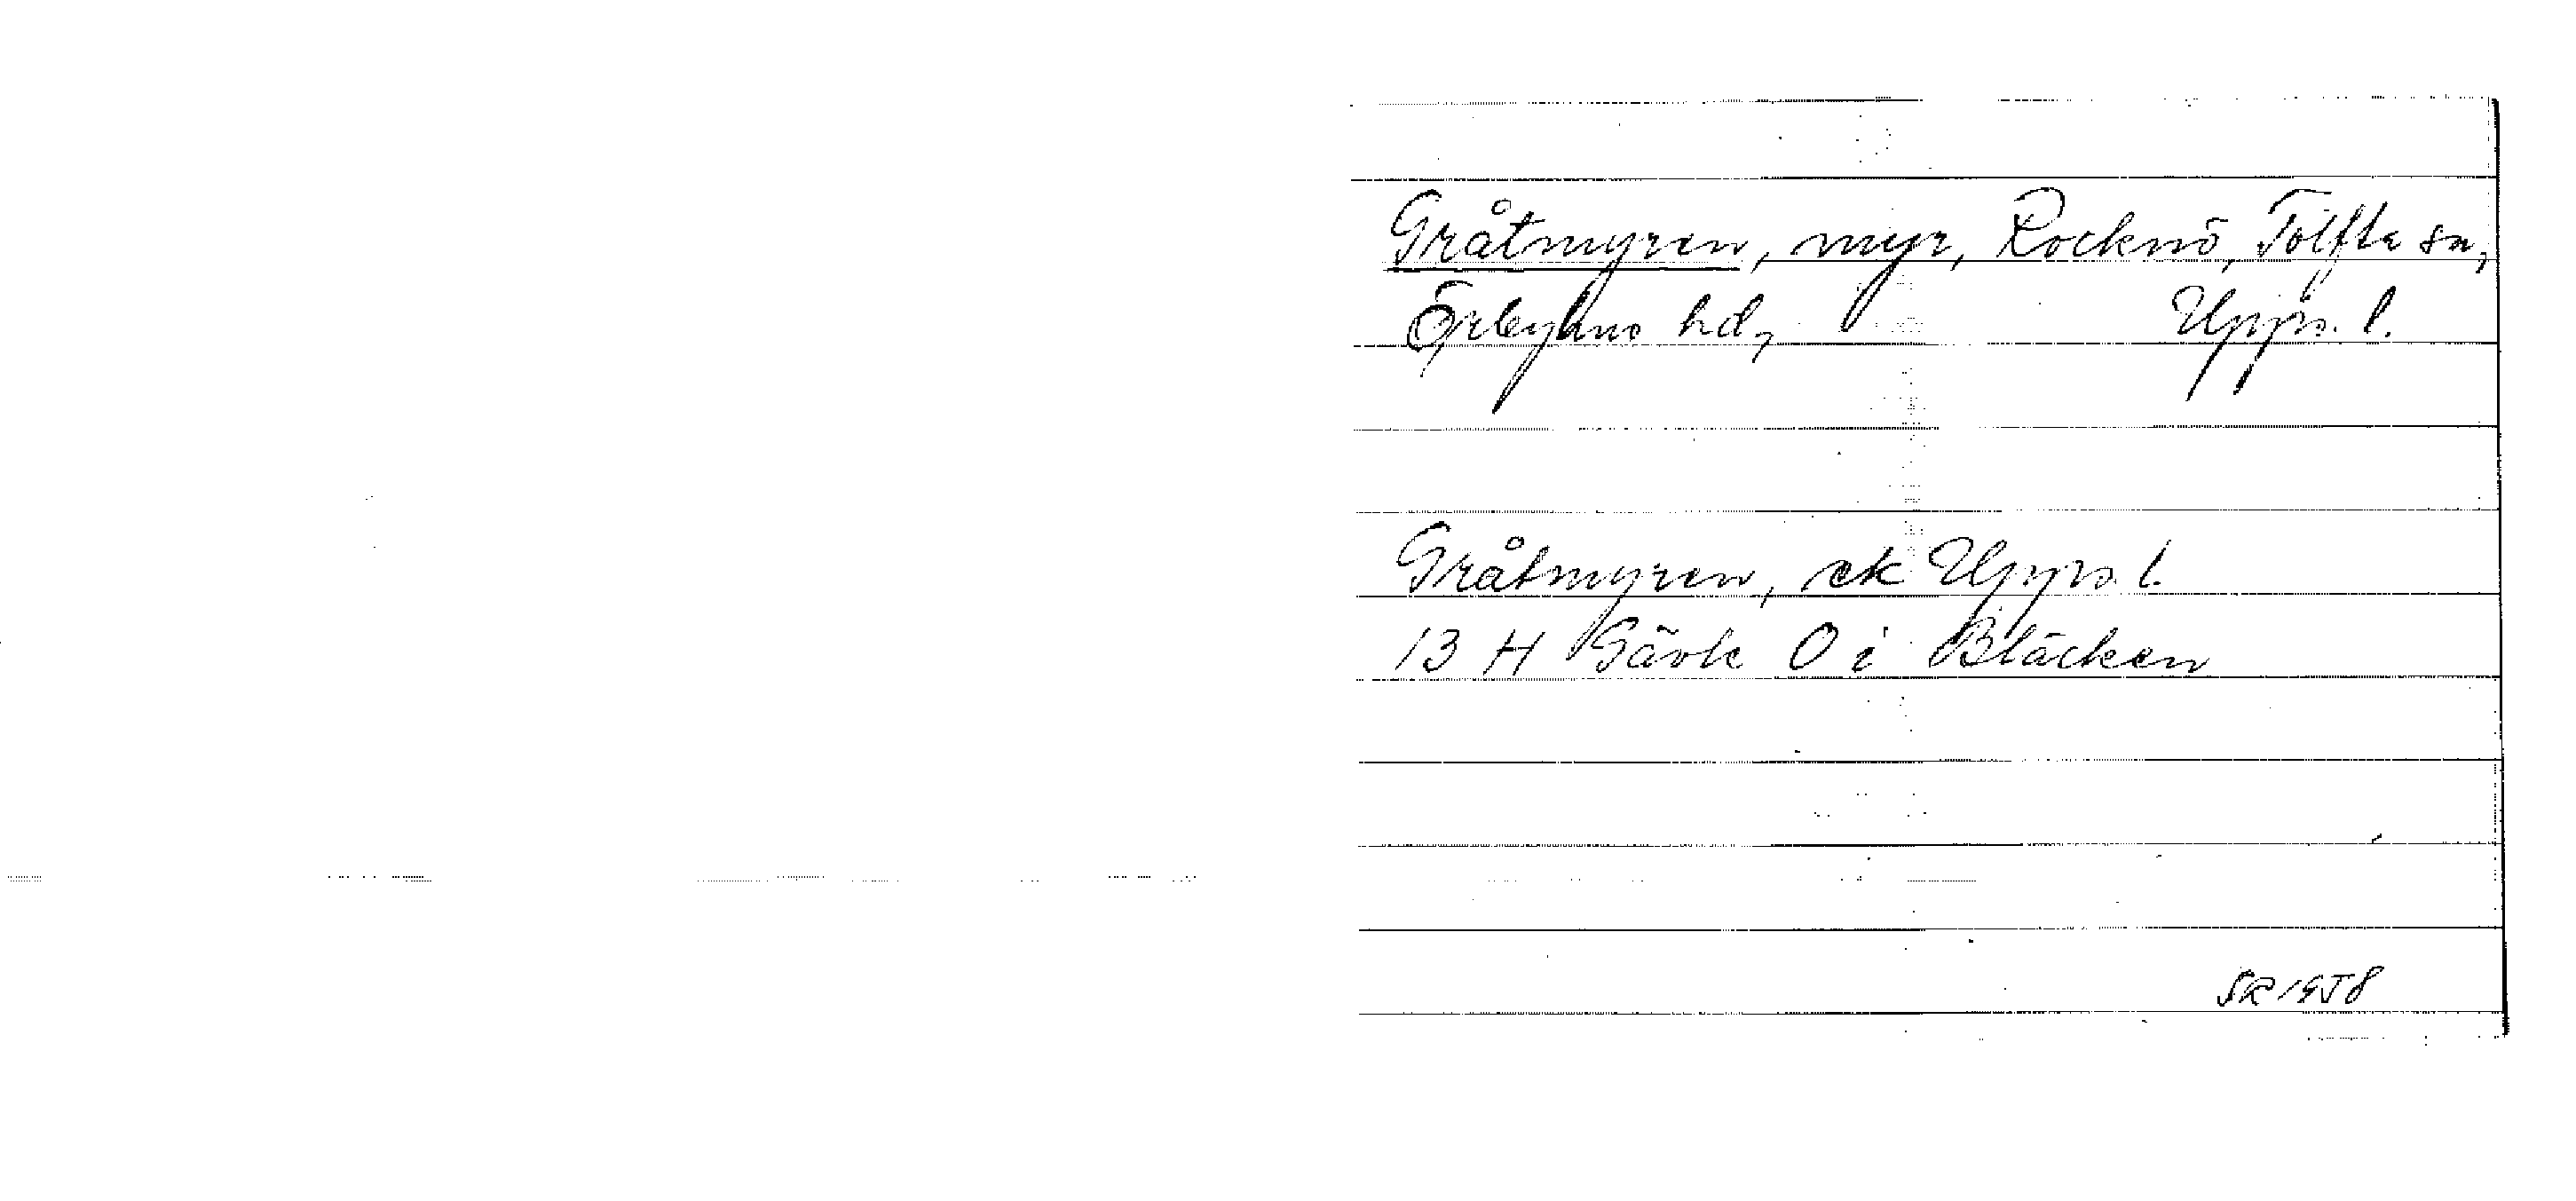 Gråtmyren, myr, Rocknö, Tolfta sn,
Örbyhus hd, Upps. l.
Gråtmyren, ek Upps. l.
13 H Gävle O i Bläcken
SR 1958